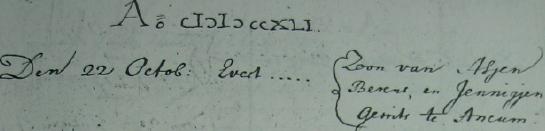 Aº cIɔIɔccXLI.
Den 22 Octob: Evert ..... Zoon van Asjen
Berens, en Jennigjen
Gerrits te Ancum.